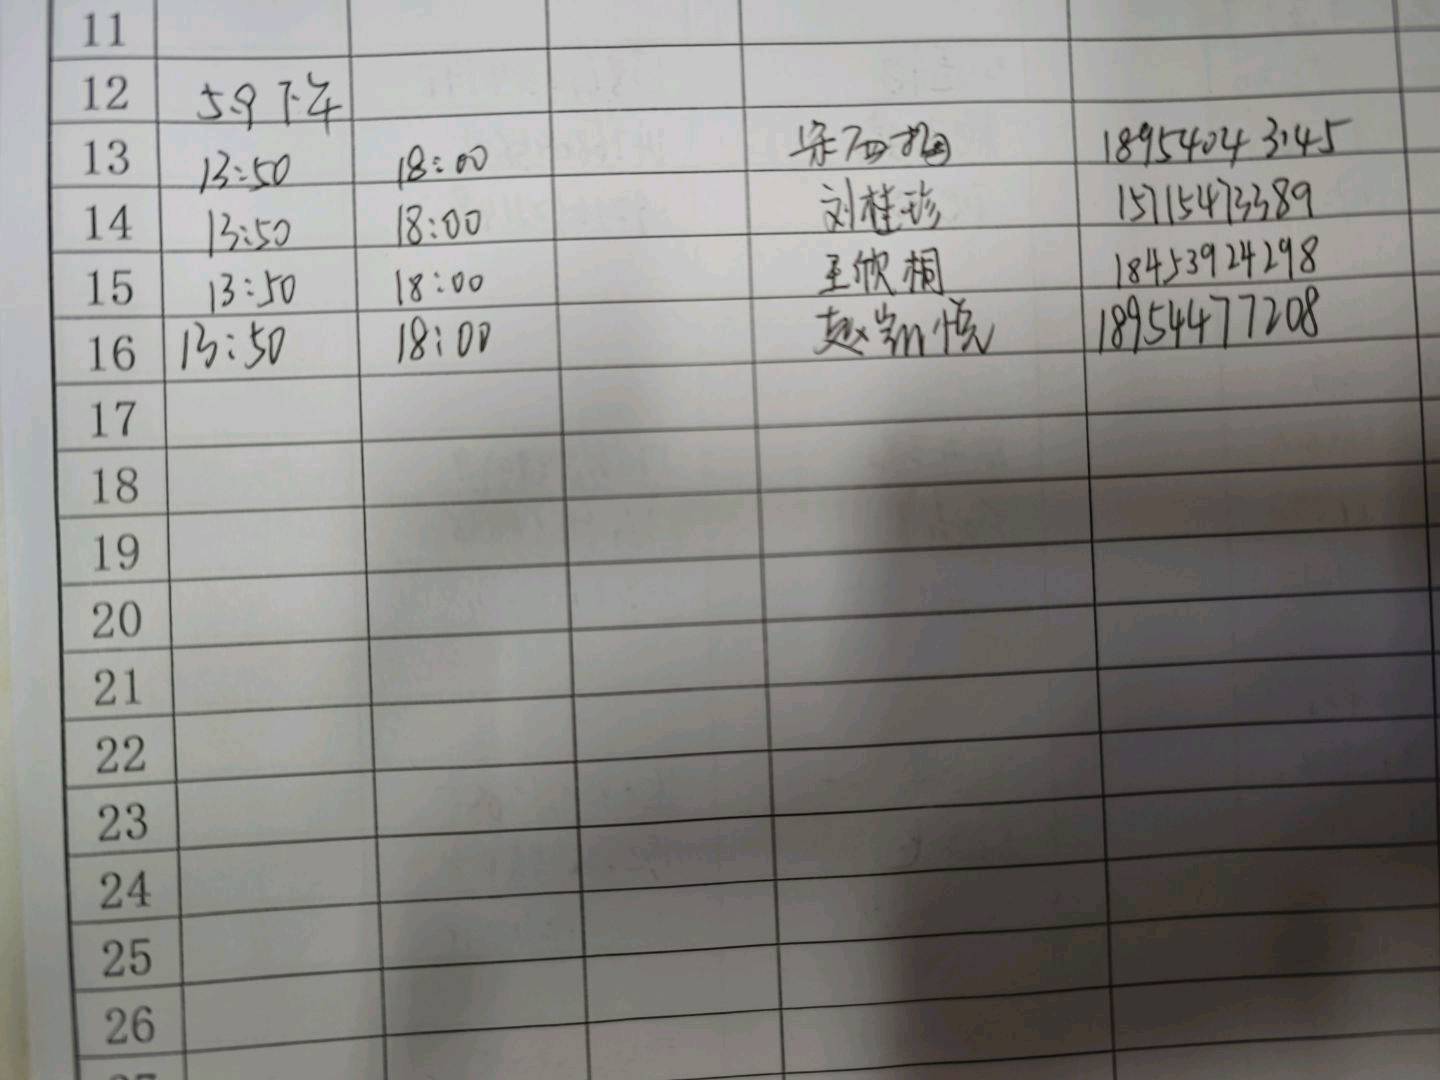 11
12 5.9 下午
13 13:50 18:00 18954043145
14 13:50 18:00 刘桂珍 15715473389
15 13:50 18:00 王欣桐 18453924298
16 13:50 18:00 赵 悦 18954477208
17
18
19
20
21
22
23
24
25
26
27